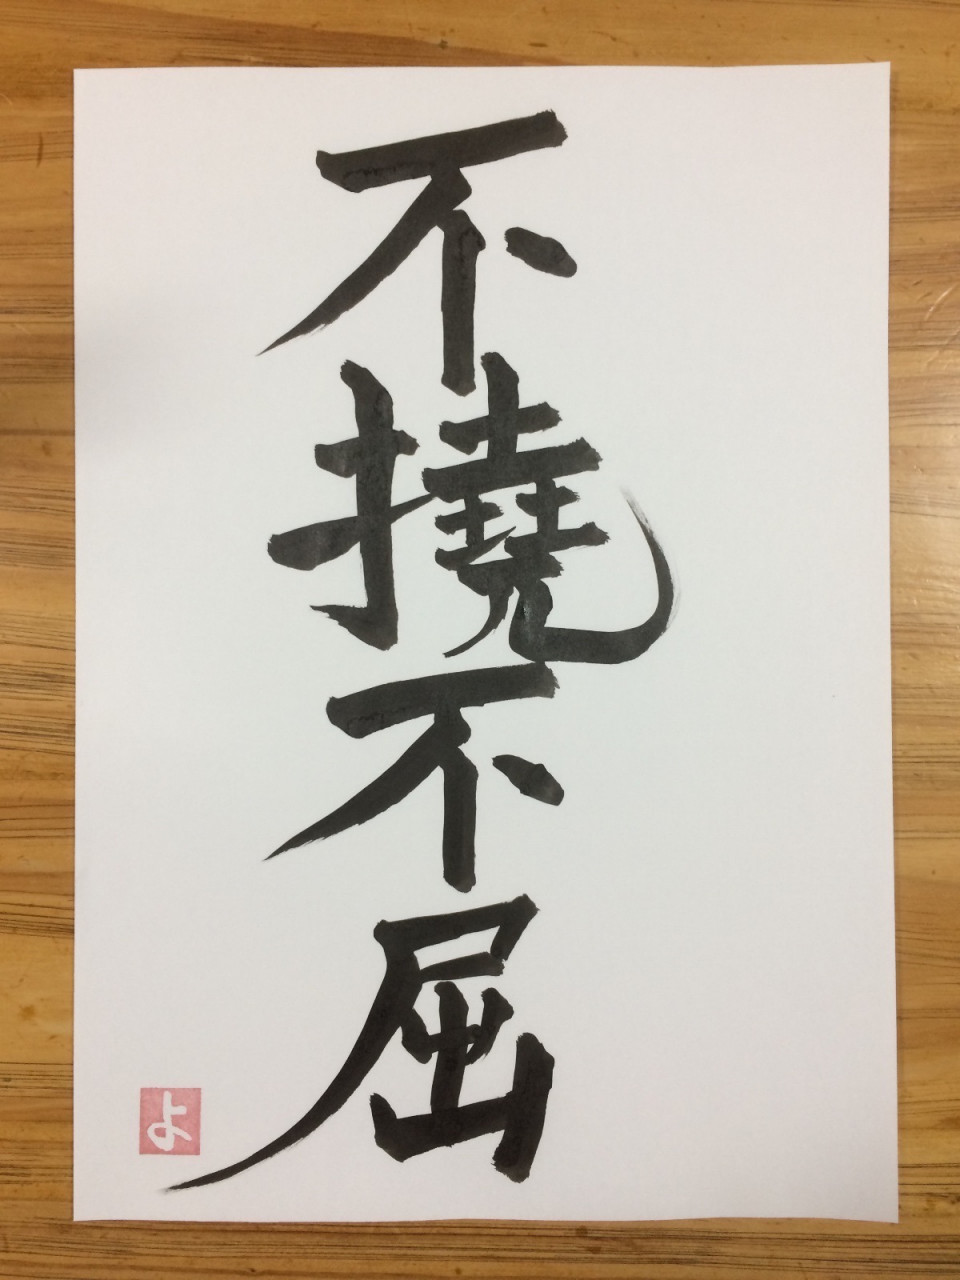 不撓不屈
よ